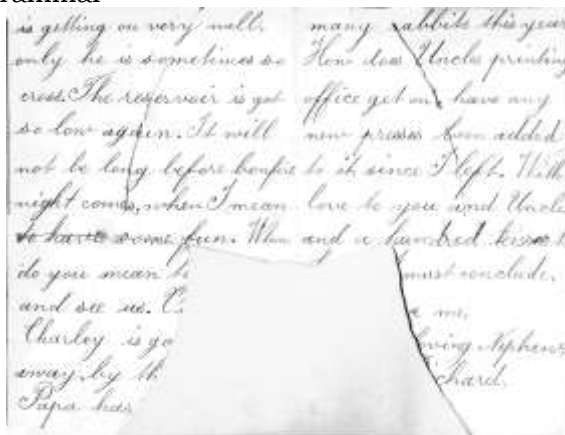 rammar
is getting on very well,
only he is sometimes so
cross. The reservoir is got
so low again. It will
not be long before bonfire
night comes, when I mean
to have some fun. When
do you mean t
and see us. C
Charley is go
away, by th
Papa has
many rabbits this year
How does Uncles printing
office get on, have any
new presses been added
to it since I left. With
love to you and Uncle
and a hundred kisses
must conclude.
e me,
oving Nephew,
chard.